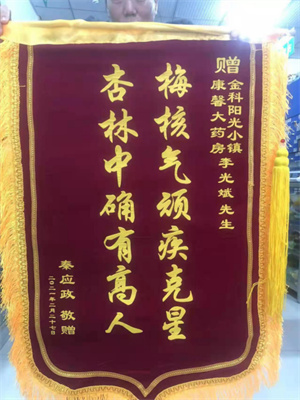 赠
金科阳光小镇
康馨大药房李光斌先生
梅核气顽疾克星
杏林中确有高人
秦应政 敬赠
二〇二一年二月二十七日